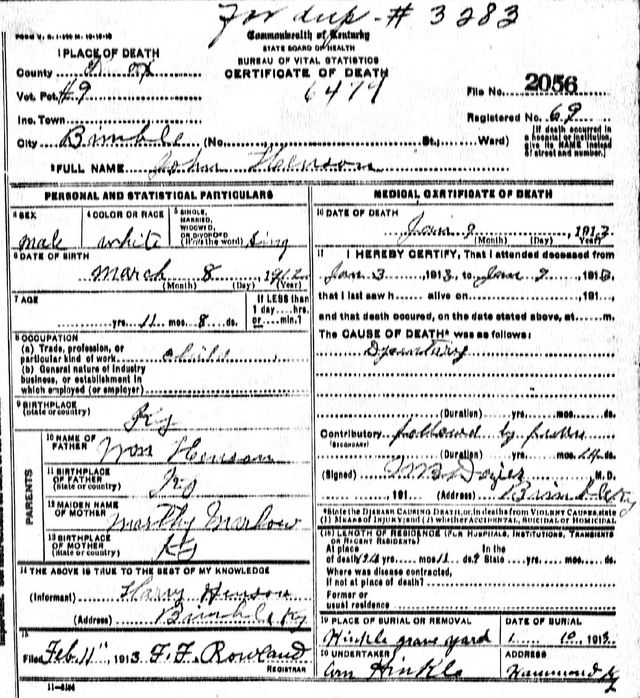 For dup - # 3283
FORM V. S. 1-200 M. 10-10-10
Commonwealth of Kentucky
STATE BOARD OF HEALTH
BUREAU OF VITAL STATISTICS
CERTIFICATE OF DEATH
1 PLACE OF DEATH
County
Vot. Pct. #9
6477
File No. 2056
Inc. Town
Registered No. 69
City Brimble (No. St.; Ward)
(If death occurred in a hospital or institution, give its NAME instead of street and number.)
2 FULL NAME John Henson
PERSONAL AND STATISTICAL PARTICULARS
3 SEX male
4 COLOR OR RACE white
5 SINGLE, MARRIED, WIDOWED, OR DIVORCED (Write the word) Sing
6 DATE OF BIRTH
march 8 1912
(Month) (Day) (Year)
7 AGE
yrs. 11 mos. 8 ds.
If LESS than 1 day ... hrs. or ... min.?
8 OCCUPATION
(a) Trade, profession, or particular kind of work child
(b) General nature of industry business, or establishment in which employed (or employer)
9 BIRTHPLACE
(State or country) Ky
PARENTS
10 NAME OF FATHER Wm Henson
11 BIRTHPLACE OF FATHER (State or country) Ky
12 MAIDEN NAME OF MOTHER Marthy Marlow
13 BIRTHPLACE OF MOTHER (State or country) Ky
14 THE ABOVE IS TRUE TO THE BEST OF MY KNOWLEDGE
(Informant) Harry Henson
(Address) Brimble Ky
15
Filed Feb. 11", 1913 F. F. Rowland
REGISTRAR
11-5184
MEDICAL CERTIFICATE OF DEATH
16 DATE OF DEATH
Jan 9, 1913
(Month) (Day) (Year)
17 I HEREBY CERTIFY, That I attended deceased from
Jan 3, 1913, to Jan 9, 1913,
that I last saw h alive on , 191 ,
and that death occured, on the date stated above, at m.
The CAUSE OF DEATH* was as follows:
Dysentary
(Duration) yrs. mos. ds.
Contributory followed by
(SECONDARY)
(Duration) yrs. mos. 14 ds.
(Signed) M. D.
, 191 (Address) Brimble Ky
*State the DISEASE CAUSING DEATH, or, in deaths from VIOLENT CAUSES, state (1) MEANS OF INJURY; and (2) whether ACCIDENTAL, SUICIDAL or HOMICIDAL
(18) LENGTH OF RESIDENCE (FOR HOSPITALS, INSTITUTIONS, TRANSIENTS OR RECENT RESIDENTS)
At place of death yrs. mos. ds. In the
Where was disease contracted,
If not at place of death?
Former or
usual residence
19 PLACE OF BURIAL OR REMOVAL
Hinkle grave yard
DATE OF BURIAL
1 10, 1913
20 UNDERTAKER
Hinkle
ADDRESS
Hammond Ky